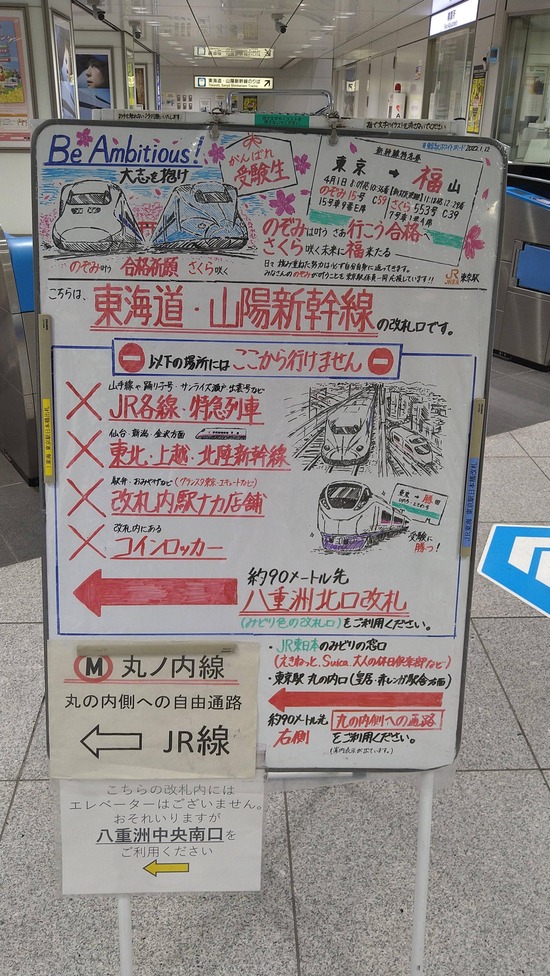 東海道・山陽新幹線のりば
Be Ambitious!
大志を抱け
がんばれ
受験生
新幹線特急券
東京→福山
のぞみは叶う さあ行こう合格へ
さくら咲く未来に福来たる
のぞみは叶う 合格祈願 さくら咲く
JR 東京駅
こちらは、
東海道・山陽新幹線の改札口です。
以下の場所にはここから行けません
山手線や踊り子号・サンライズ瀬戸・出雲号など
JR各線・特急列車
仙台・新潟・金沢方面
東北・上越・北陸新幹線
駅弁・おみやげなど(グランスタ東京・エキュートなど)
改札内駅ナカ店舗
改札内にある
コインロッカー
東京→勝田
受験に
勝つ!
約90メートル先
八重洲北口改札
(みどり色の改札口)をご利用ください。
・JR東日本のみどりの窓口
(えきねっと、Suica、大人の休日倶楽部など)
・東京駅 丸の内口(皇居・赤レンガ駅舎方面)
約90メートル先 丸の内側への通路
右側 をご利用ください。
(案内表示が出ています。)
M 丸ノ内線
丸の内側への自由通路
JR線
こちらの改札内には
エレベーターはございません。
おそれいりますが
八重洲中央南口を
ご利用ください